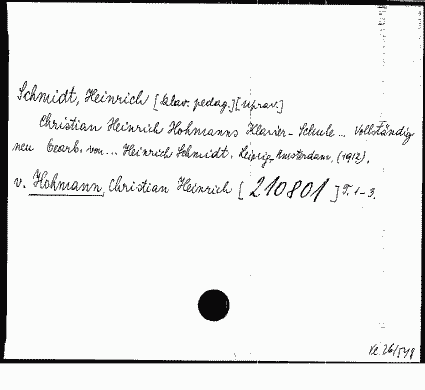 Schmidt, Heinrich [klav. pedag.][uprav.]
Christian Heinrich Hohmanns Klavier-Schule ... Vollständig
neu bearb. von ... Heinrich Schmidt. Leipzig, Amsterdam, (1912).
v. Hohmann, Christian Heinrich [210801] T. 1-3.
Kč 26/548